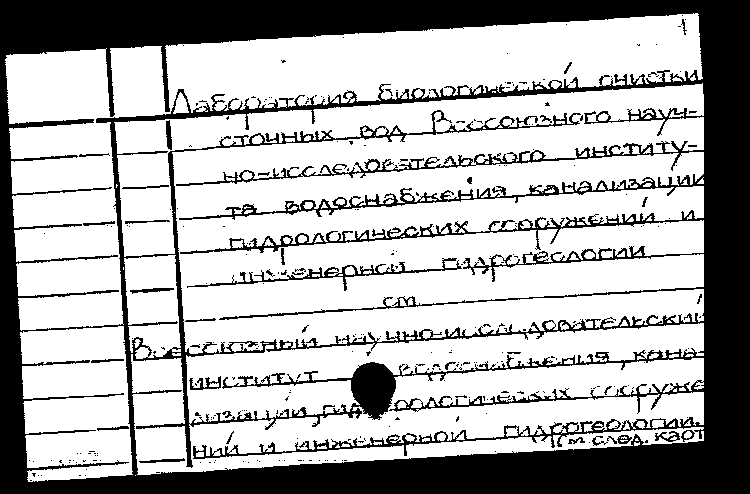 1
Лаборатория биологической очистки
сточных вод Всесоюзного науч-
но-исследовательского институ-
та водоснабжения, канализации
гидрологических сооружений и
инженерной гидрогеологии
см.
Всесоюзный научно-исследовательский
институт водоснабжения, кана-
лизации, гидрологических сооруже
ний и инженерной гидрогеологии.
(см след. карт